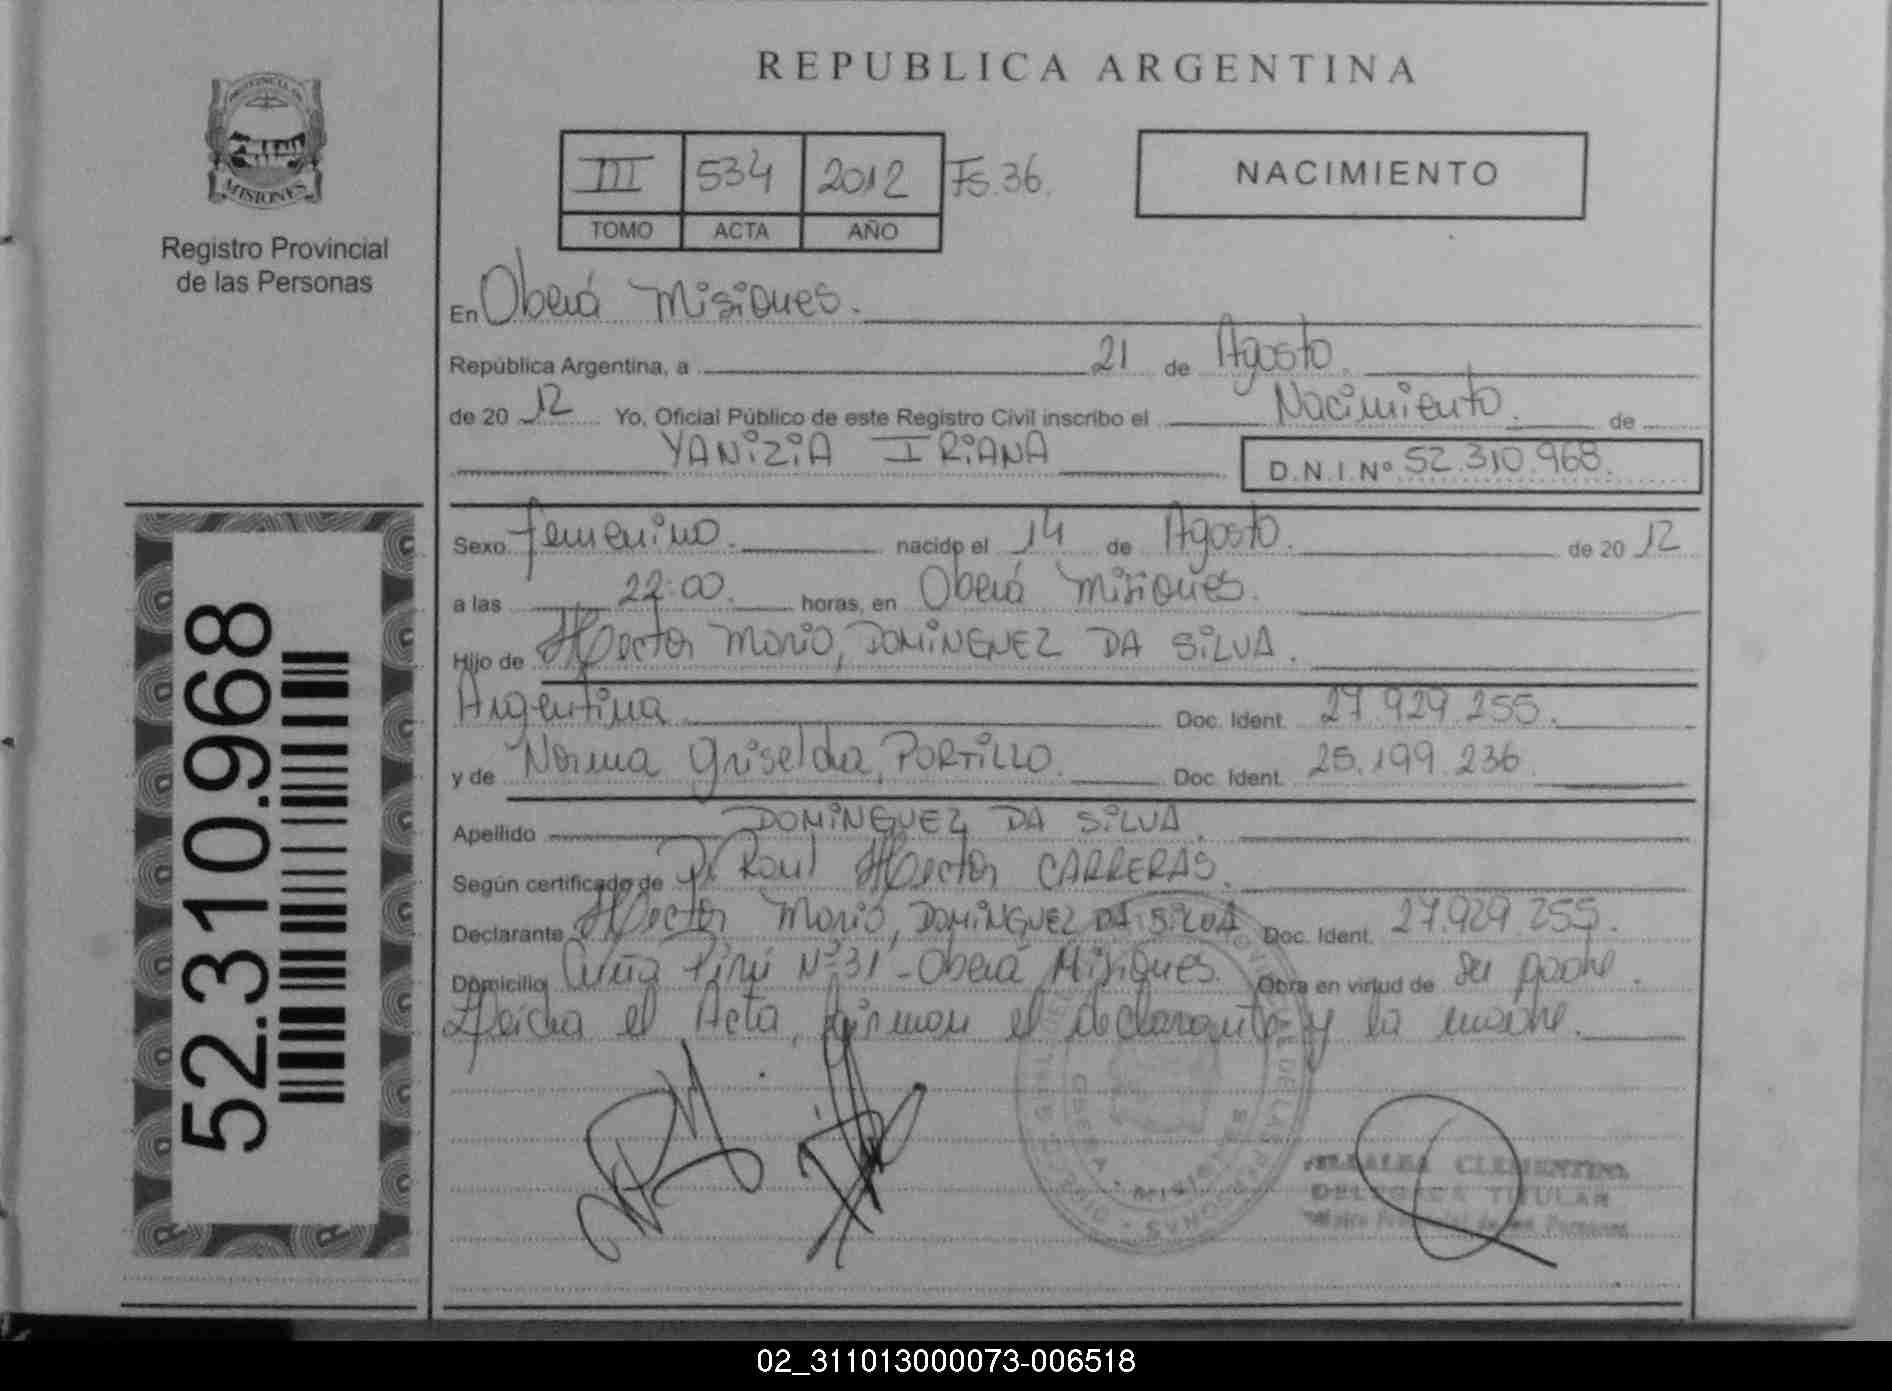 PROVINCIA DE
MISIONES
Registro Provincial
de las Personas
52.310.968
REPUBLICA ARGENTINA
III 534 2012 Fs.36.
TOMO ACTA AÑO
NACIMIENTO
En Oberá Misiones.
República Argentina, a 21 de Agosto.
de 20 12 Yo, Oficial Público de este Registro Civil inscribo el Nacimiento. de
YANIZIA IRIANA D.N.I.Nº 52.310.968.
Sexo femenino. nacido el 14 de Agosto. de 20 12
a las 22:00. horas, en Oberá Misiones.
Hijo de Hector Mario, DOMINGUEZ DA SILVA.
Argentina Doc. Ident. 27.929.255.
y de Norma Griselda, PORTILLO. Doc. Ident. 25.199.236
Apellido DOMINGUEZ DA SILVA.
Según certificado de Dr Raul Hector CARRERAS.
Declarante Hector Mario, DOMINGUEZ DA SILVA Doc. Ident. 27.929.255.
Domicilio Cuña Pirú Nº31 - Oberá Misiones. Obra en virtud de su padre.
Leida el Acta, firman el declarante y la madre.
CLEMENTINA
DELEGADA TITULAR
02_311013000073-006518